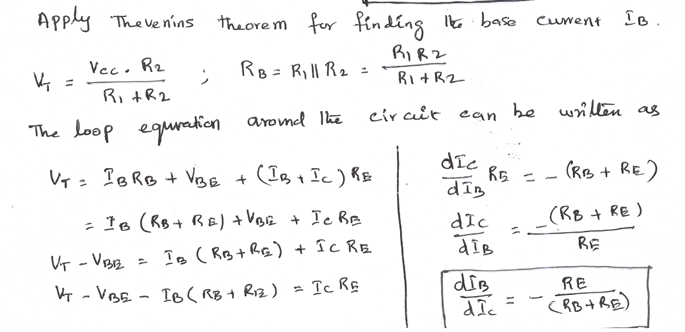 Apply Thevenins theorem for finding the base current IB.
VT = Vcc . R2 / R1 + R2 ; RB = R1 || R2 = R1 R2 / R1 + R2
The loop equvration around the circuit can be written as
VT = IB RB + VBE + (IB + IC) RE
= IB (RB + RE) + VBE + IC RE
VT - VBE = IB (RB + RE) + IC RE
VT - VBE - IB (RB + RE) = IC RE
dIC / dIB RE = - (RB + RE)
dIC / dIB = - (RB + RE) / RE
dIB / dIC = - RE / (RB + RE)